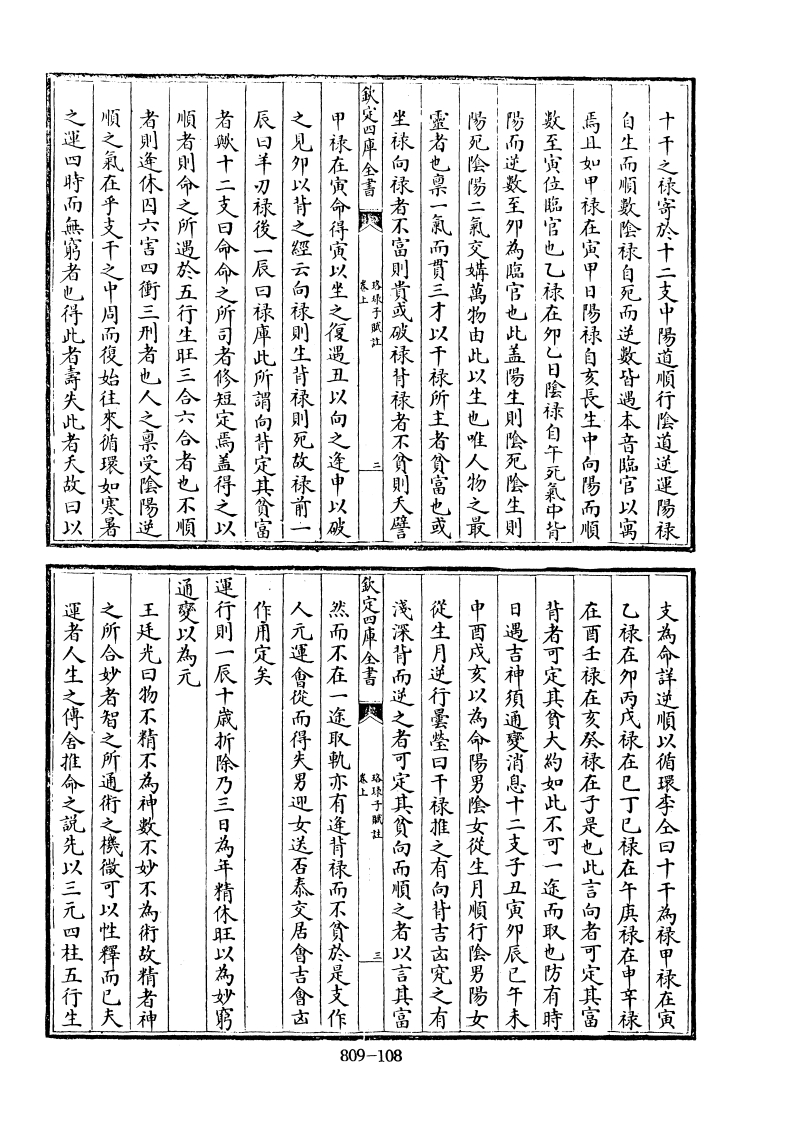 十干之禄寄於十二支中陽道順行陰道逆運陽禄
自生而順數陰禄自死而逆數皆遇本音臨官以寓
焉且如甲禄在寅甲日陽禄自亥長生中向陽而順
數至寅位臨官也乙禄在夘乙日陰禄自午死氣中背
陽而逆數至夘為臨官也此盖陽生則陰死陰生則
陽死陰陽二氣交媾萬物由此以生也唯人物之最
靈者也禀一氣而貫三才以干禄所主者貧富也或
坐禄向禄者不富則貴或破禄背禄者不貧則夭譬
欽定四庫全書
珞琭子賦註
卷上
二
甲禄在寅命得寅以坐之復遇丑以向之逢申以破
之見夘以背之經云向禄則生背禄則死故禄前一
辰曰羊刃禄後一辰曰禄庫此所謂向背定其貧富
者歟十二支曰命命之所司者修短定焉盖得之以
順者則命之所遇於五行生旺三合六合者也不順
者則逢休囚六害四衝三刑者也人之禀受陰陽逆
順之氣在乎支干之中周而復始往來循環如寒暑
之運四時而無窮者也得此者壽失此者夭故曰以
支為命詳逆順以循環李仝曰十干為禄甲禄在寅
乙禄在夘丙戊禄在巳丁己禄在午庚禄在申辛禄
在酉壬禄在亥癸禄在子是也此言向者可定其富
背者可定其貧大約如此不可一途而取也防有時
日遇吉神須通變消息十二支子丑寅夘辰巳午未
申酉戌亥以為命陽男陰女從生月順行陰男陽女
從生月逆行曇瑩曰干禄推之有向背吉凶究之有
淺深背而逆之者可定其貧向而順之者以言其富
欽定四庫全書
珞琭子賦註
卷上
三
然而不在一途取軌亦有逢背禄而不貧於是支作
人元運會從而得失男迎女送否泰交居會吉會凶
作用定矣
運行則一辰十歲折除乃三日為年精休旺以為妙窮
通變以為元
王廷光曰物不精不為神數不妙不為術故精者神
之所合妙者智之所通術之機微可以性釋而已夫
運者人生之傳舍推命之説先以三元四柱五行生
809-108